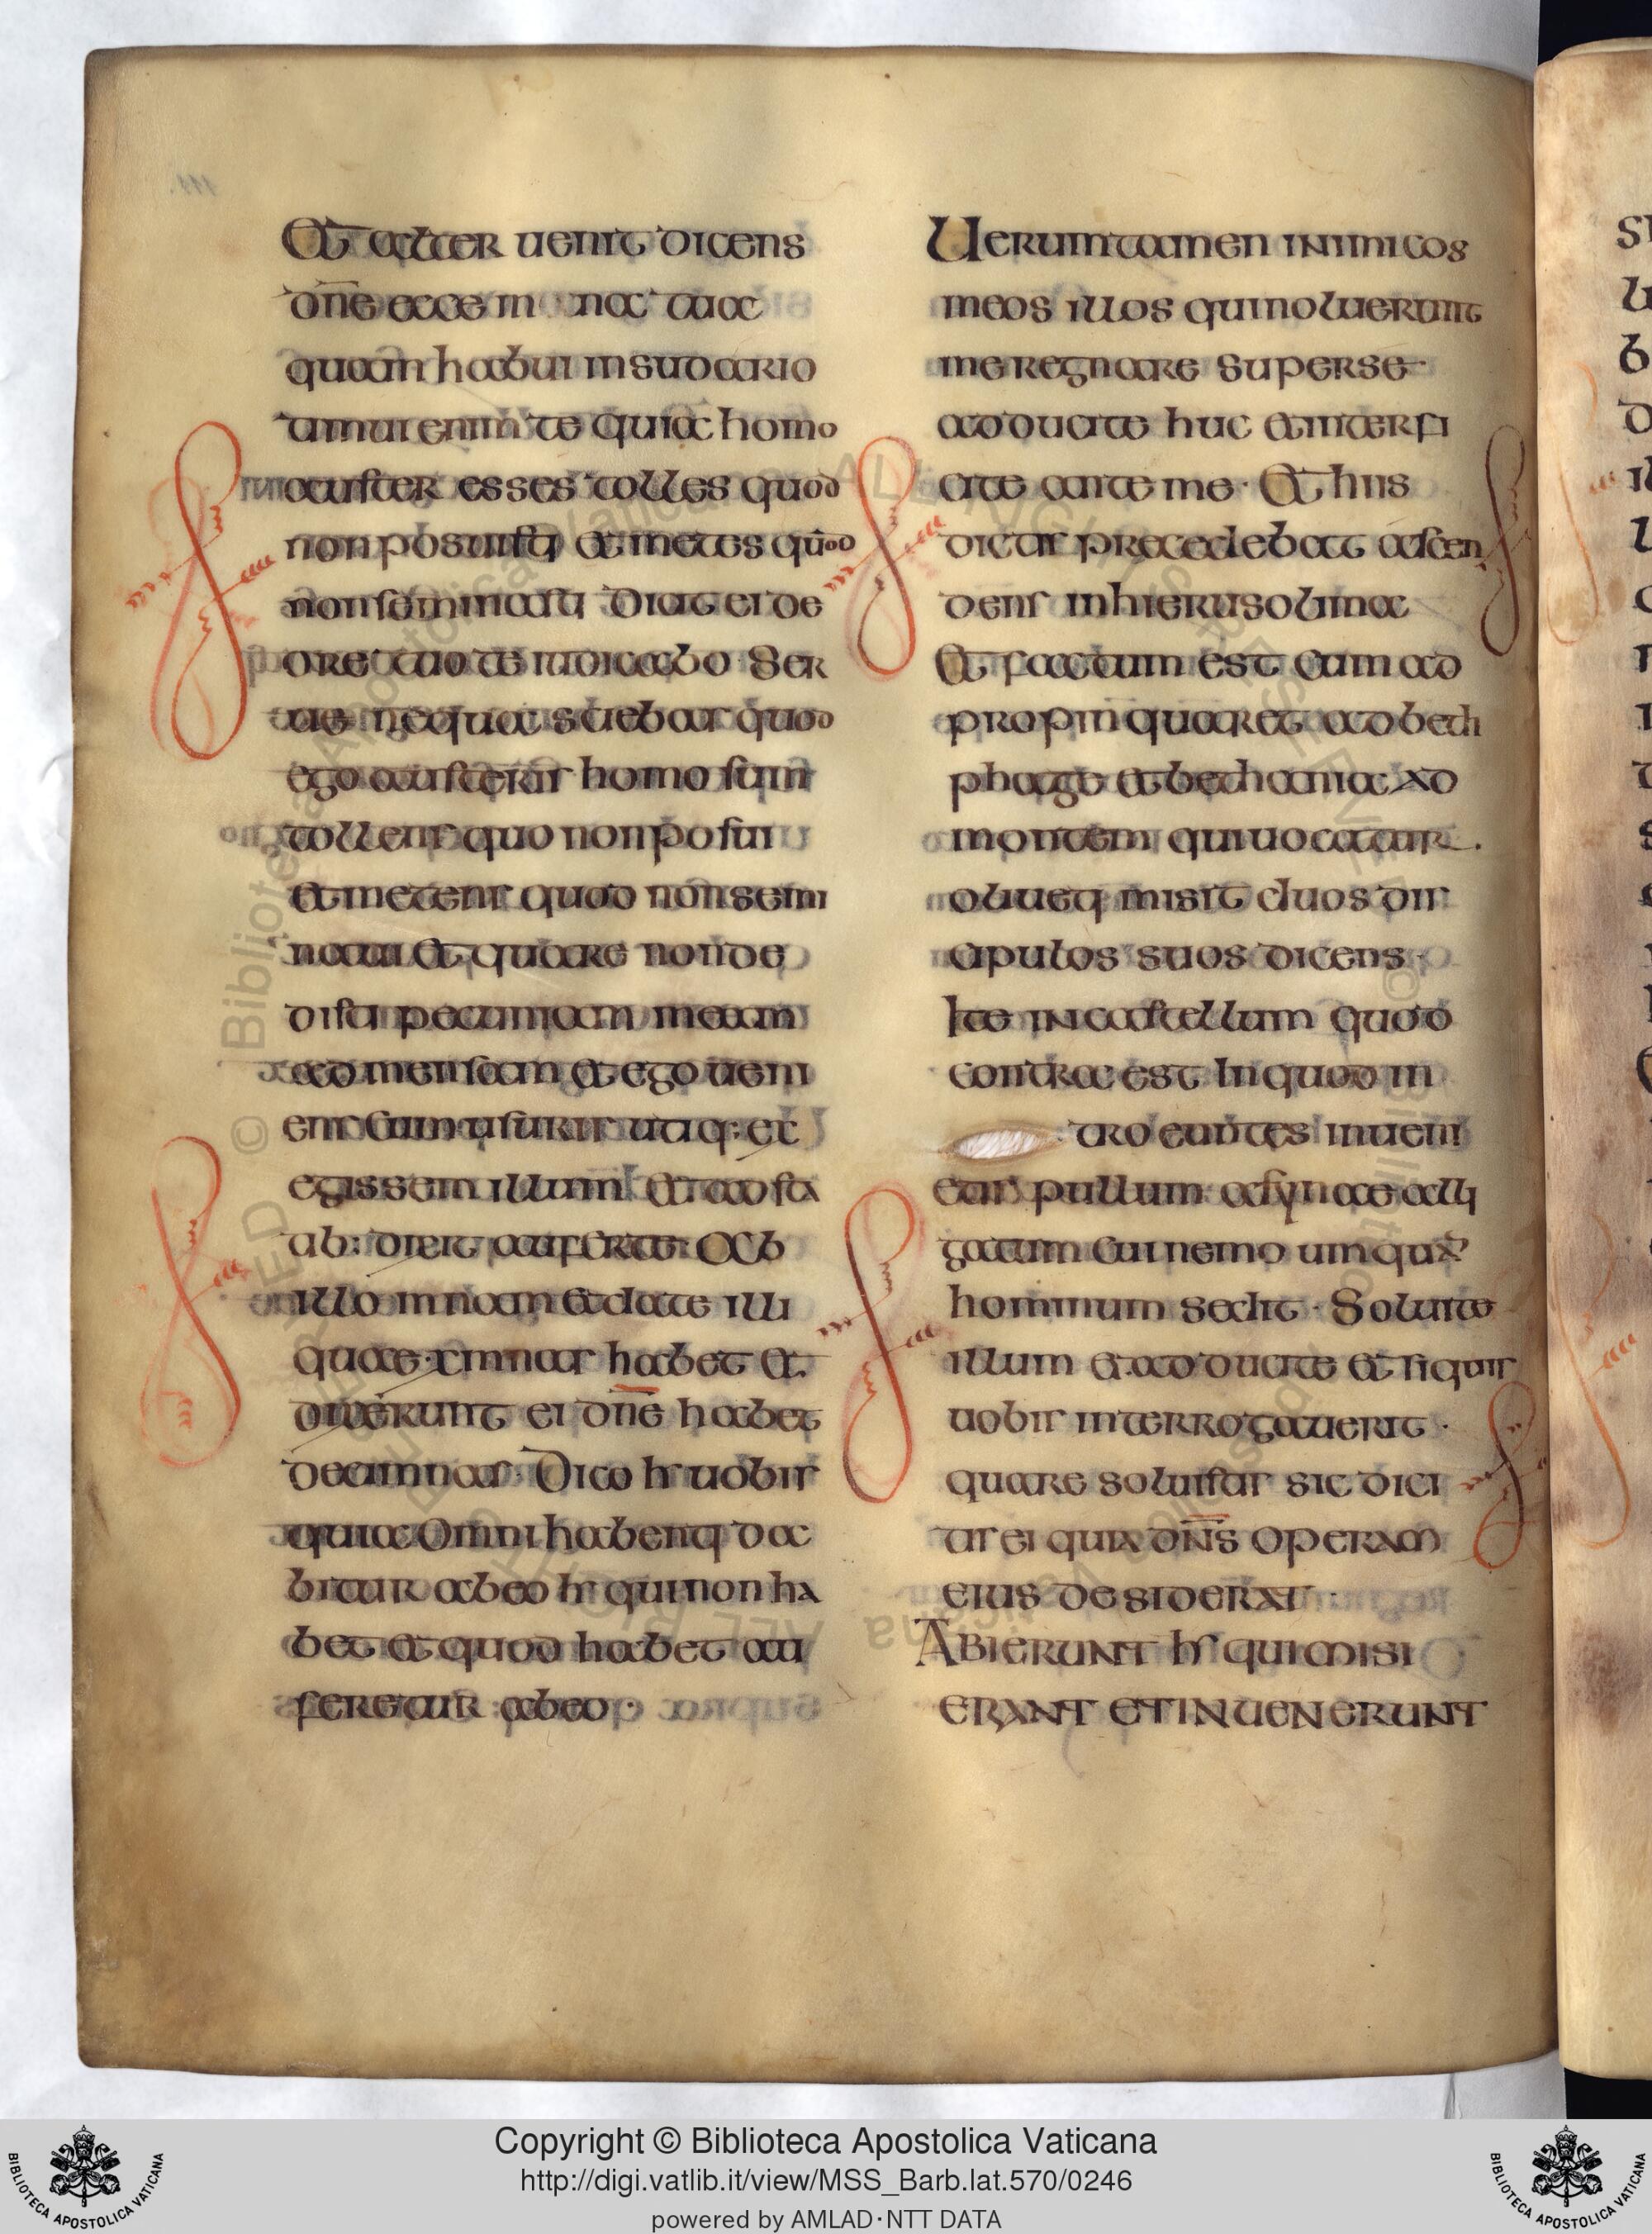 Et alter uenit dicens
dn̄e ecce m na tua
quam habui in sudario
timui enim te quia homo
auster es ses tolles quod
non possuisti et metes quod
non seminasti Dicit ei de
ore tuo te iudicabo Ser
ue nequa sciebas quod
ego austeris homo sum
tollens quo non posui
et metens quod non semi
naui et quare non de
disti pecuniam meam
ad mensam et ego ueni
ens cum usuris utiq: ex
egissem illum Et adsta
ab: dixit auferte Ab
illo mnam et date illi
quae x mnas habet Et
dixerunt ei dn̄e habet
decim nas Dico h uobis
quia omni habenti da
bitur ab eo h qui non ha
bet et quod habet au
feretur ab eo
Uerumtamen inimicos
meos illos qui noluerunt
me regnare super se
adducite huc et interfi
cite ante me · Et hiis
dictis precedebat ascen
dens in hierusolima
Et factum est cum ad
propinquaret ad beth
phage et bethania ad
montem qui uocatur
oliueti misit duos dis
cipulos suos dicens
Ite in castellum quod
contra est In quod in
tro euntes inueni
etis pullum asynae alli
gatum cui nemo umqua
hominum sedit · Soluite
illum et adducite et si quis
uobis interrogauerit ·
quare soluistis sic dici
tis ei quia dn̄s operam
eius desiderat ·
Abierunt h qui misi
erant et inuenerunt
Copyright © Biblioteca Apostolica Vaticana
http://digi.vatlib.it/view/MSS_Barb.lat.570/0246
powered by AMLAD·NTT DATA
BIBLIOTECA APOSTOLICA VATICANA
BIBLIOTECA APOSTOLICA VATICANA